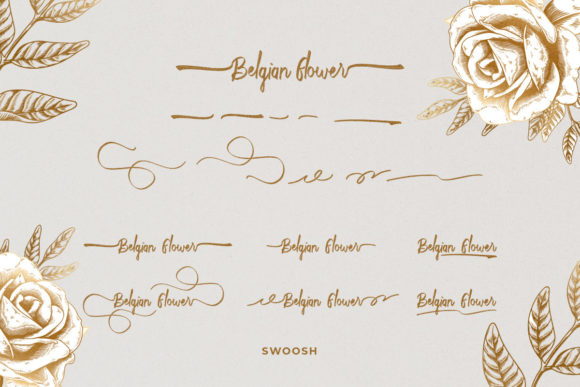 Belgian flower
Belgian flower Belgian flower Belgian flower
Belgian flower Belgian flower Belgian flower
SWOOSH